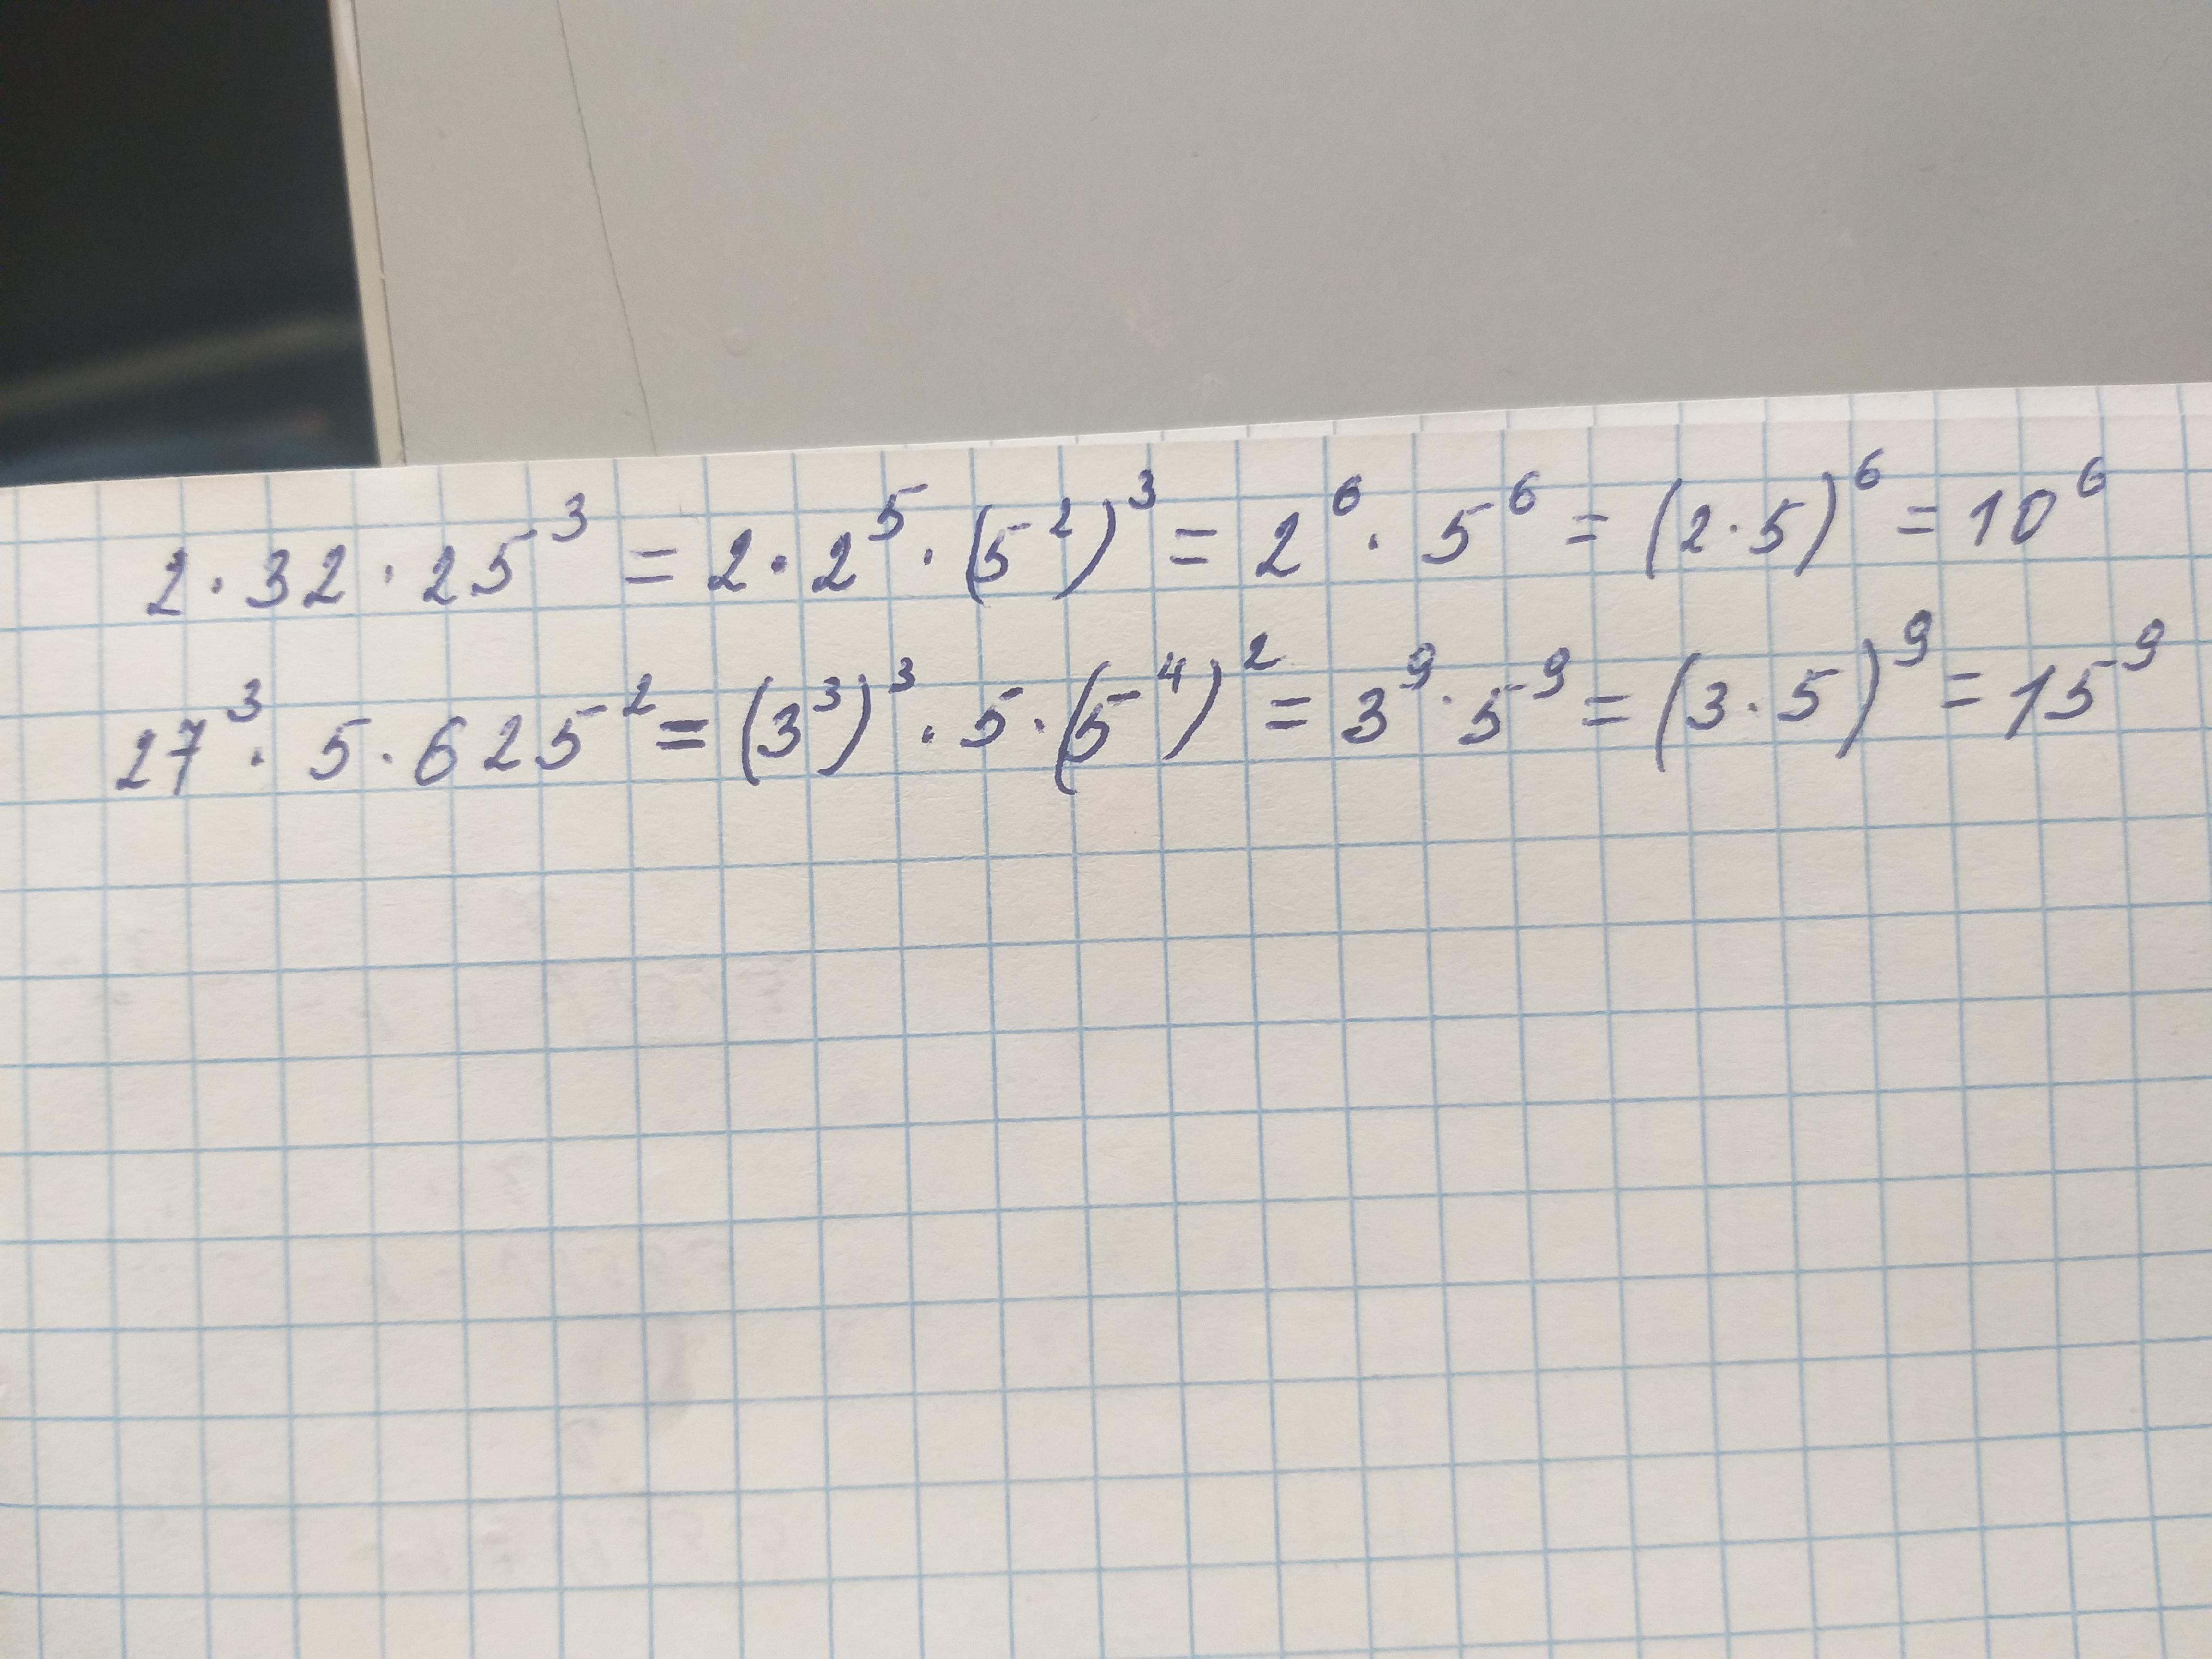 2·32·25³ = 2·2⁵·(5²)³ = 2⁶·5⁶ = (2·5)⁶ = 10⁶
27³·5·625² = (3³)³·5·(5⁴)² = 3⁹·5⁹ = (3·5)⁹ = 15⁹